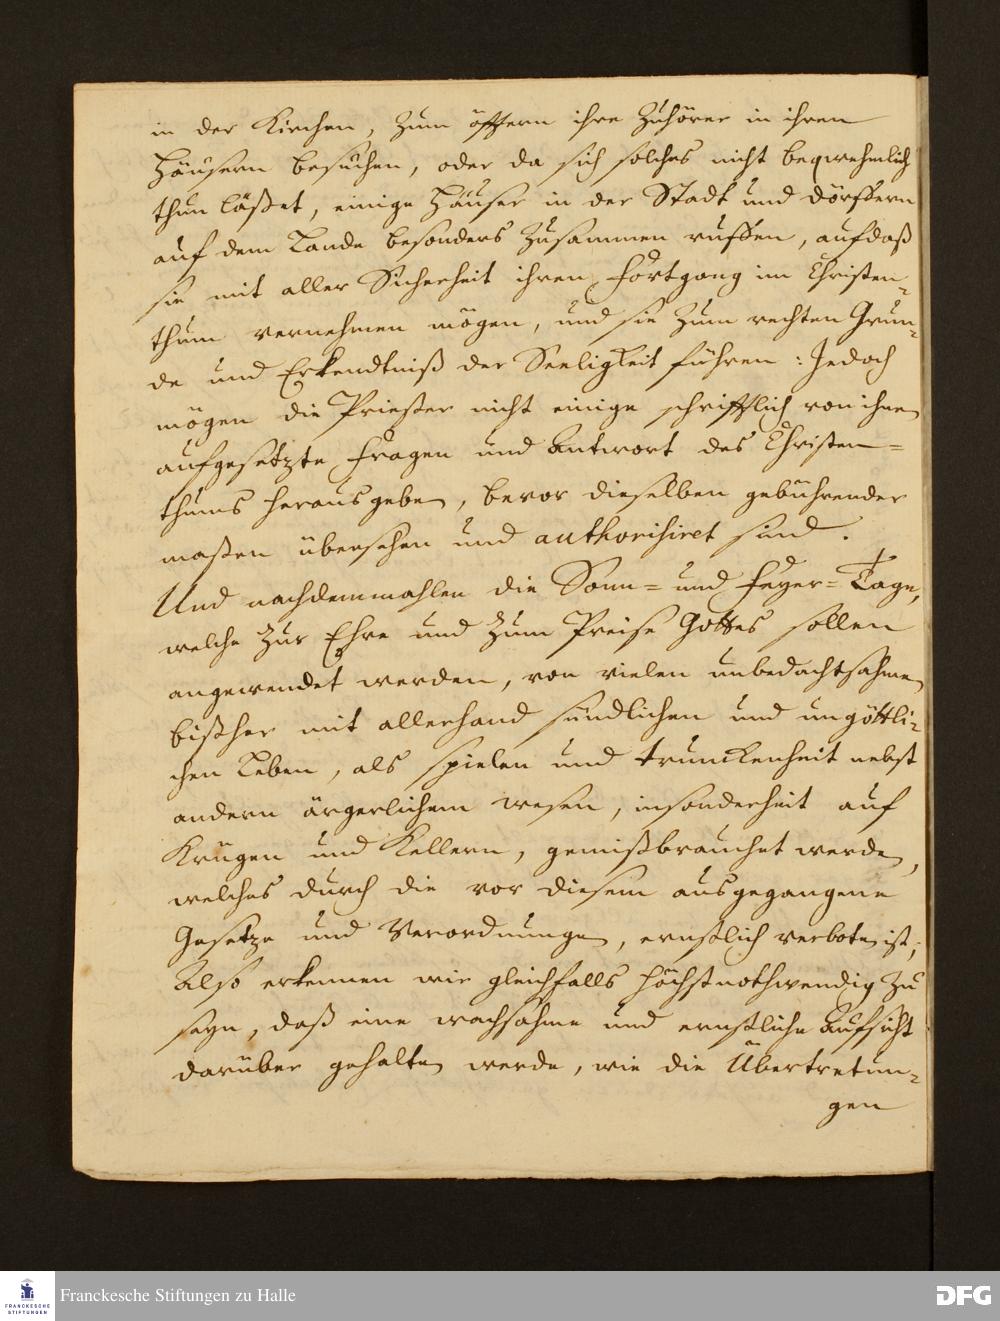 in der Kirchen, zum öfftern ihre Zuhörer in ihren
Häusern besuchen, oder da sich solches nicht beqwehmlich
thun läßet, einige Häuser in der Stadt und dörffern
auf dem Lande besonders zusammen ruffen, aufdaß
sie mit aller Sicherheit ihren fortgang im Christen-
thum vernehmen mögen, und sie zum rechten Grun-
de und Erkendtniß der Seeligkeit führen: Jedoch
mögen die Priester nicht einige schrifftlich von ihnen
aufgesetzte fragen und Antwort des Christen-
thums herausgeben, bevor dieselben gebührender
maßen übersehen und authorisiret sind.
Und nachdemmahlen die Sonn- und feyer-Tage,
welche zur Ehre und zum Preise Gottes sollen
angewendet werden, von vielen unbedachtsahmen
bißher mit allerhand sündlichen und ungöttli-
chen Leben, als spielen und trunckenheit nebst
andern ärgerlichem wesen, insonderheit auf
Krügen und Kellern, gemißbrauchet werden,
welches durch die vor diesem ausgegangene
Gesetze und Verordnungen, ernstlich verboten ist;
Also erkennen wir gleichfalls höchstnothwendig zu
seyn, daß eine wachsahme und ernstliche Aufsicht
darüber gehalten werde, wie die Übertretun-
gen
FRANCKESCHE
STIFTUNGEN
Franckesche Stiftungen zu Halle
DFG